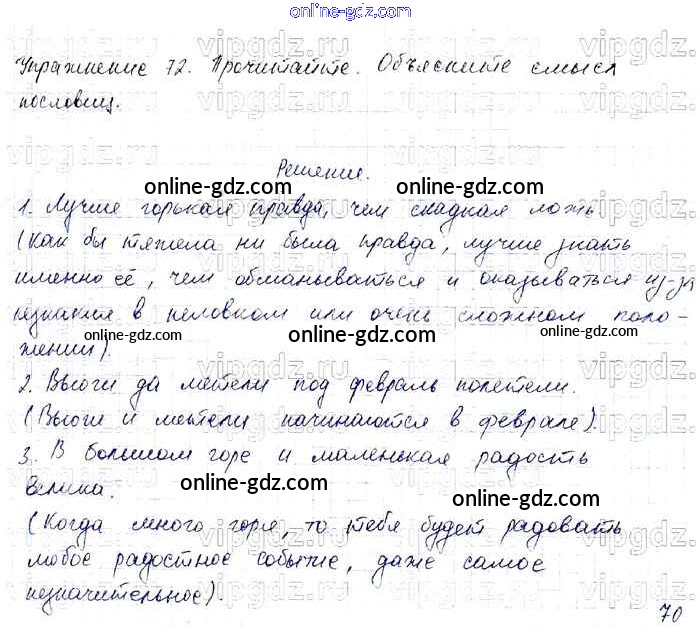 online-gdz.com
Упражнение 72. Прочитайте. Объясните смысл
пословиц.
Решение.
1. Лучше горькая правда, чем сладкая ложь
(Как бы тяжела ни была правда, лучше знать
именно её, чем обманываться и оказываться из-за
незнания в неловком или очень сложном поло-
жении).
2. Вьюги да метели под февраль полетели.
(Вьюги и метели начинаются в феврале).
3. В большом горе и маленькая радость
велика.
(Когда много горя, то тебя будет радовать
любое радостное событие, даже самое
незначительное).
70